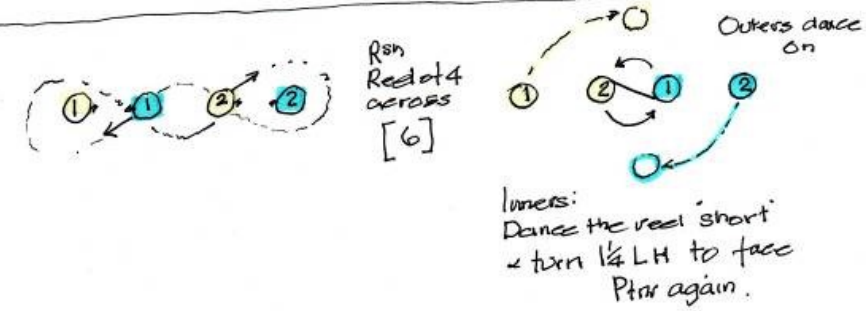 ① ① ② ②
Rsh
Reel of 4
across
[6]
① ② ① ②
Outers dance
on
Inners:
Dance the reel "short"
& turn 1¼ LH to face
Ptnr again.